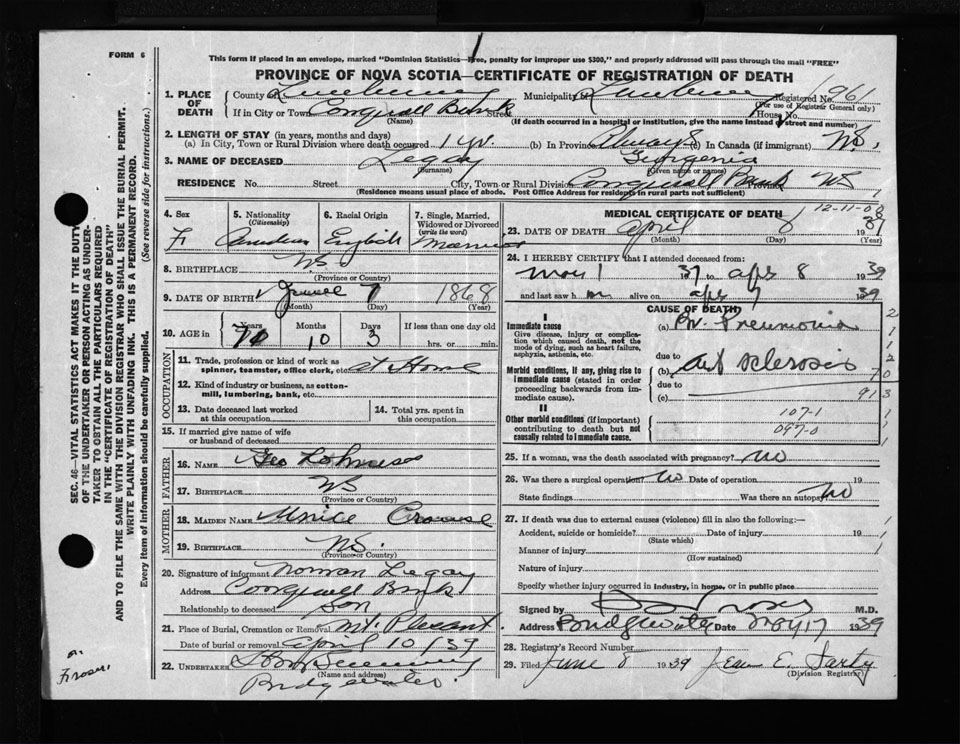 FORM 6
This form if placed in an envelope, marked "Dominion Statistics—Free, penalty for improper use $300," and properly addressed will pass through the mail "FREE"
PROVINCE OF NOVA SCOTIA—CERTIFICATE OF REGISTRATION OF DEATH
1. PLACE OF DEATH County of Lunenburg Municipality of Lunenburg Registered No. 961
(For use of Registrar General only)
If in City or Town Street House No.
(Name) (If death occurred in a hospital or institution, give the name instead of street and number)
2. LENGTH OF STAY (in years, months and days)
(a) In City, Town or Rural Division where death occurred 1 yr. (b) In Province Always (c) In Canada (if immigrant) N.S.
3. NAME OF DECEASED Legay Georgenia
(Surname) (Given name or names)
RESIDENCE No. Street City, Town or Rural Division Bank Province NS
(Residence means usual place of abode. Post Office Address for residents in rural parts not sufficient)
4. Sex F
5. Nationality (Citizenship) Canadian
6. Racial Origin English
7. Single, Married, Widowed or Divorced (write the word) Married
8. BIRTHPLACE NS
(Province or Country)
9. DATE OF BIRTH 7 1868
(Month) (Day) (Year)
10. AGE in Years Months Days If less than one day old
70 10 3 hrs. or min.
OCCUPATION
11. Trade, profession or kind of work as spinner, teamster, office clerk, etc. at Home
12. Kind of industry or business, as cotton-mill, lumbering, bank, etc.
13. Date deceased last worked at this occupation
14. Total yrs. spent in this occupation
15. If married give name of wife or husband of deceased
FATHER
16. NAME Geo
17. BIRTHPLACE NS
(Province or Country)
MOTHER
18. MAIDEN NAME Crouse
19. BIRTHPLACE NS.
(Province or Country)
20. Signature of informant Norman Legay
Address Bank
Relationship to deceased Son
21. Place of Burial, Cremation or Removal Mt. Pleasant.
Date of burial or removal April 10/39
22. UNDERTAKER
(Name and address)
Bridgewater.
MEDICAL CERTIFICATE OF DEATH
12-11-08
23. DATE OF DEATH April 8 1939
(Month) (Day) (Year)
24. I HEREBY CERTIFY that I attended deceased from
1 37 to Apr 8 1939
and last saw h alive on Apr 7 1939
CAUSE OF DEATH
I
Immediate cause
Give disease, injury or complication which caused death, not the mode of dying, such as heart failure, asphyxia, asthenia, etc.
(a) Br. Pneumonia
due to
Morbid conditions, if any, giving rise to immediate cause (stated in order proceeding backwards from immediate cause).
(b) Art sclerosis
due to
(c)
II
Other morbid conditions (if important) contributing to death but not causally related to immediate cause.
107-1
097-0
25. If a woman, was the death associated with pregnancy? No
26. Was there a surgical operation? No Date of operation 19
State findings Was there an autopsy? No
27. If death was due to external causes (violence) fill in also the following:—
Accident, suicide or homicide? Date of injury 19
(State which)
Manner of injury
(How sustained)
Nature of injury
Specify whether injury occurred in industry, in home, or in public place
Signed by M.D.
Address Bridgewater Date May 17 1939
28. Registrar's Record Number
29. Filed June 8 1939 Jean E. Sarty
(Division Registrar)
SEC. 46—VITAL STATISTICS ACT MAKES IT THE DUTY
OF THE UNDERTAKER OR PERSON ACTING AS UNDER-
TAKER TO OBTAIN ALL THE PARTICULARS REQUIRED
IN THE "CERTIFICATE OF REGISTRATION OF DEATH"
AND TO FILE THE SAME WITH THE DIVISION REGISTRAR WHO SHALL ISSUE THE BURIAL PERMIT.
WRITE PLAINLY WITH UNFADING INK. THIS IS A PERMANENT RECORD.
Every item of information should be carefully supplied. (See reverse side for instructions.)